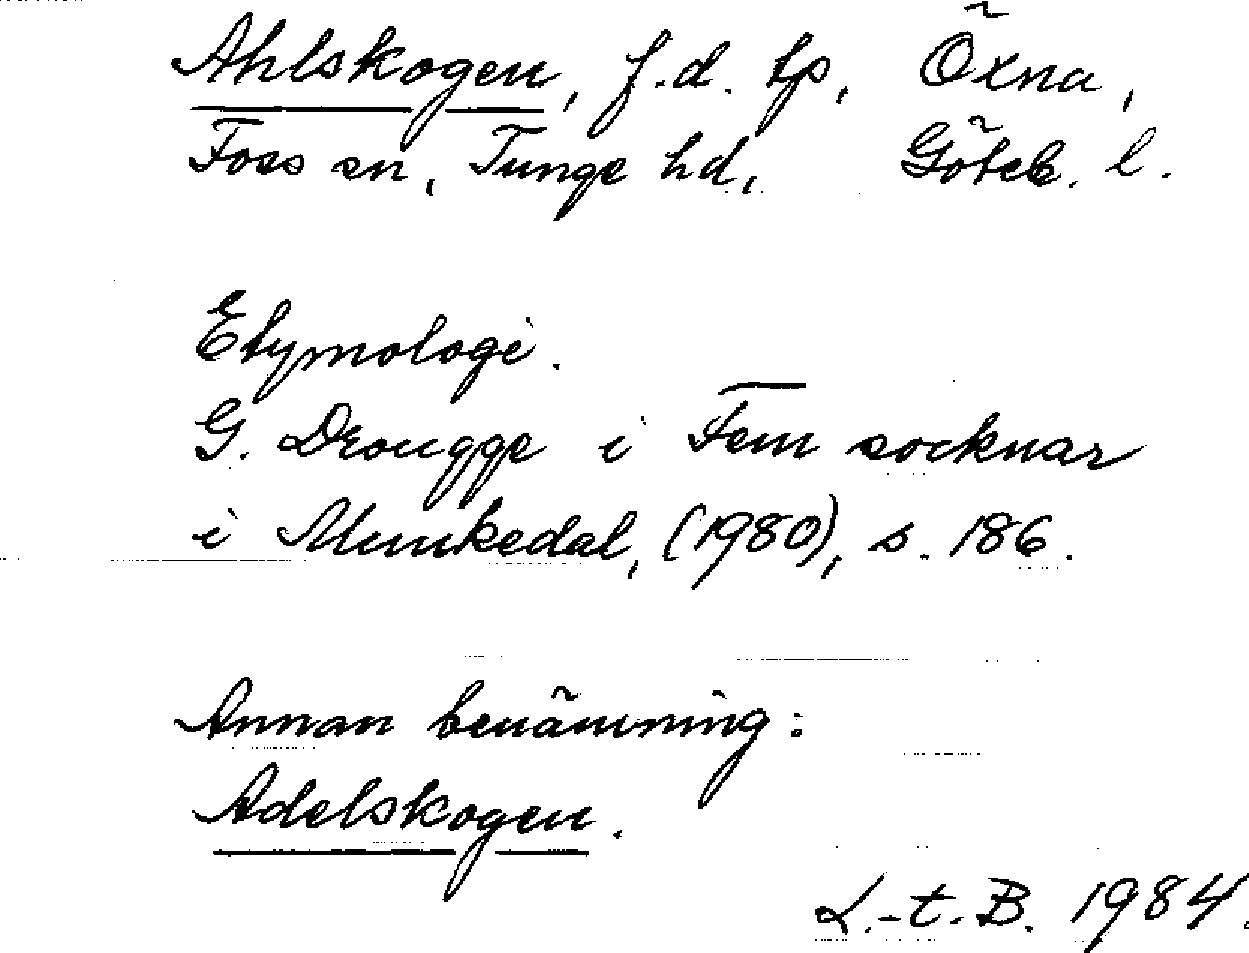 Ahlskogen, f.d. tp, Öxna,
Foss sn, Tunge hd, Göteb. l.
Etymologi.
G. Drougge i Fem socknar
i Munkedal, (1980), s. 186.
Annan benämning:
Adelskogen.
L.-t. B. 1984.